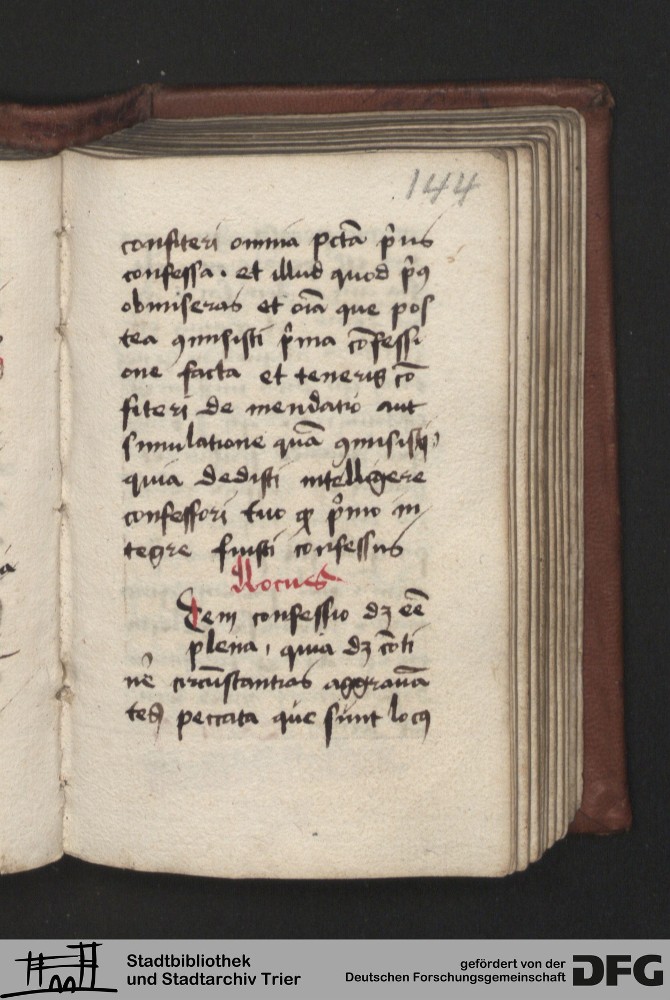 144
confiteri omnia pctā p̄us
confessa. et illud quod p̄9
obmiseras et oīa que pos
tea 9misisti p̄ma cōfessi
one facta et teneris cō
fiteri de mendatio aut
simulatione quā 9misisti
quia dedisti intelligere
confessori tuo ꝙ p̄mo in
tegre fuisti confessus
Item confessio dꝫ eē
plena, quia dꝫ cōti
nē circūstantias aggrauā
tes peccata que sunt locꝰ
Stadtbibliothek
und Stadtarchiv Trier
gefördert von der
Deutschen Forschungsgemeinschaft
DFG